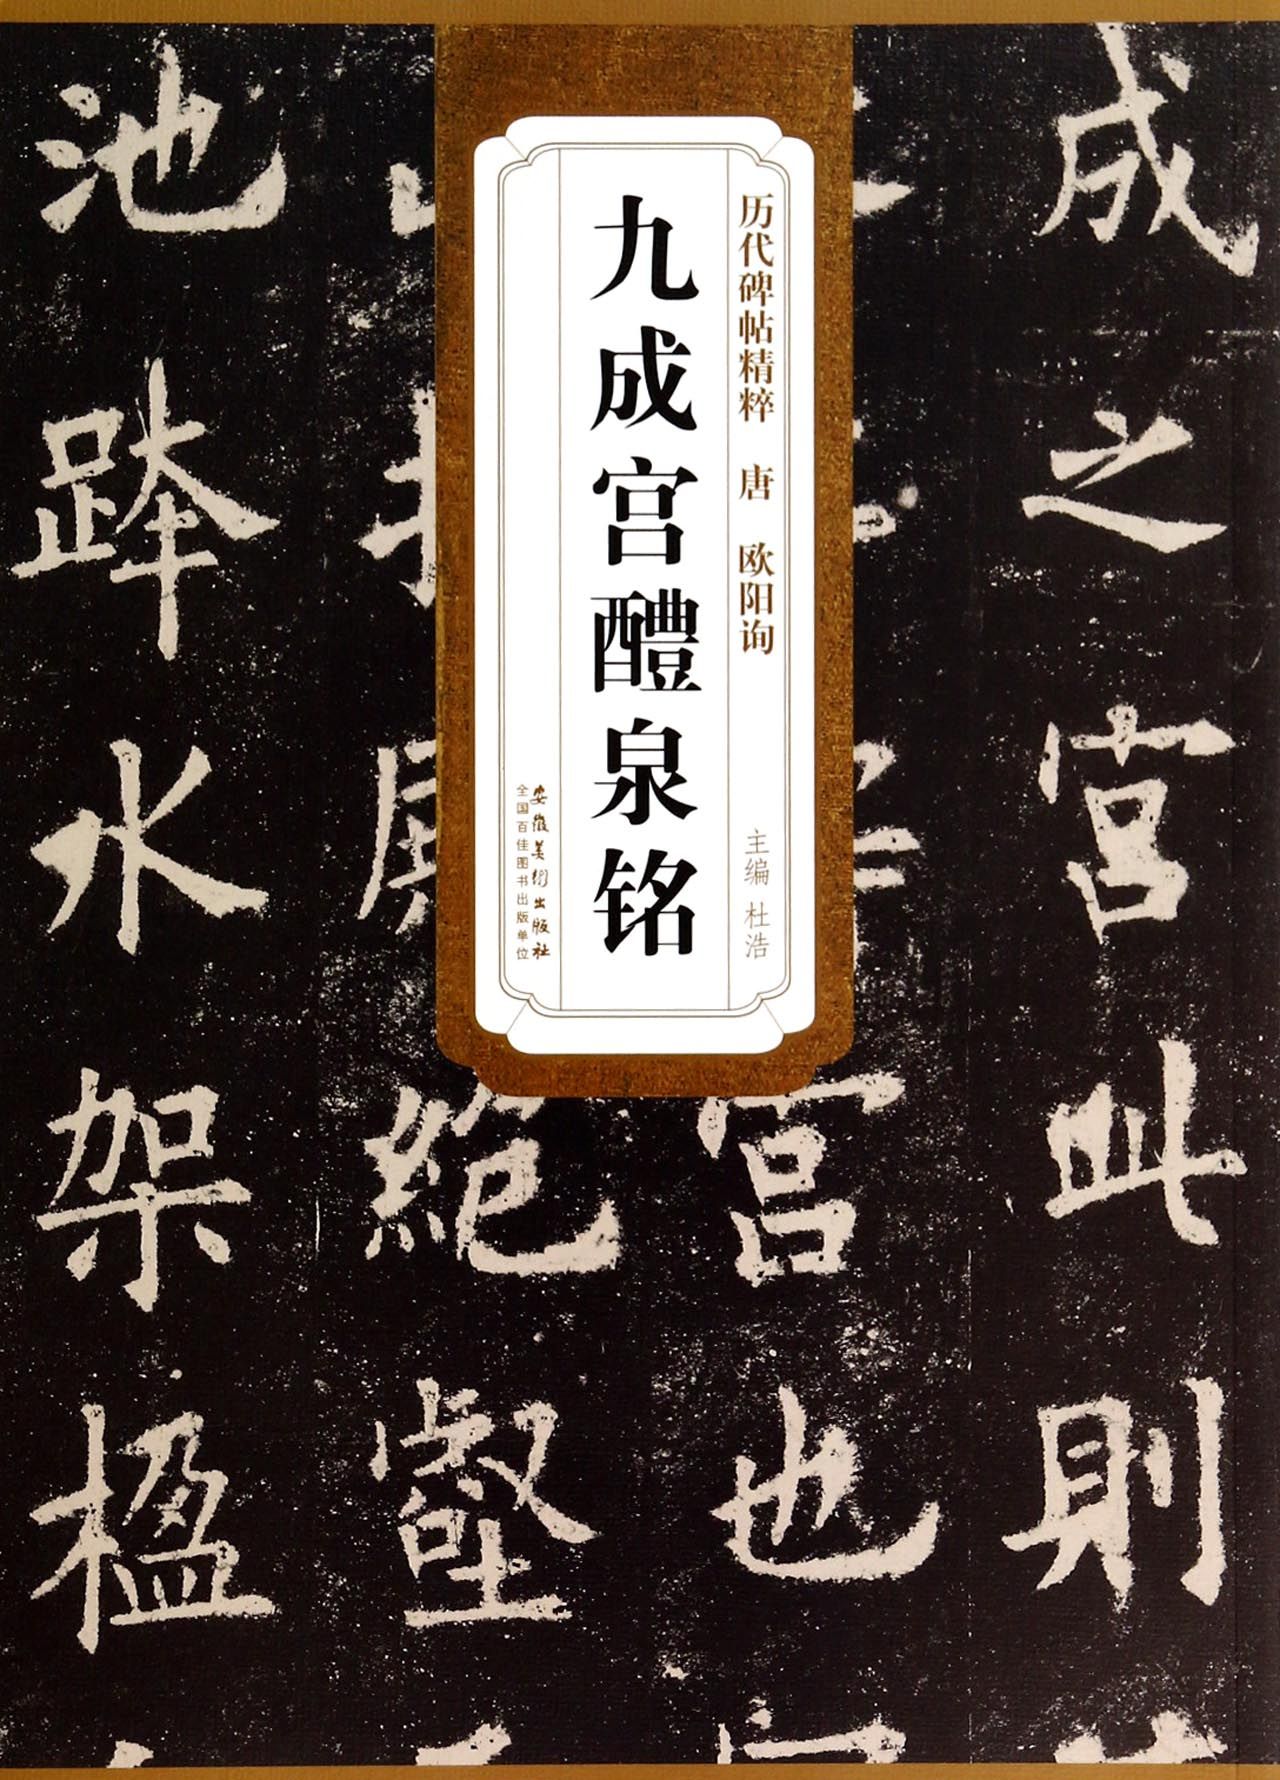 历代碑帖精粹 唐 欧阳询
主编 杜浩
九成宫醴泉铭
安徽美术出版社
全国百佳图书出版单位
成之宫此則
宫也
絕壑
池跨水架楹